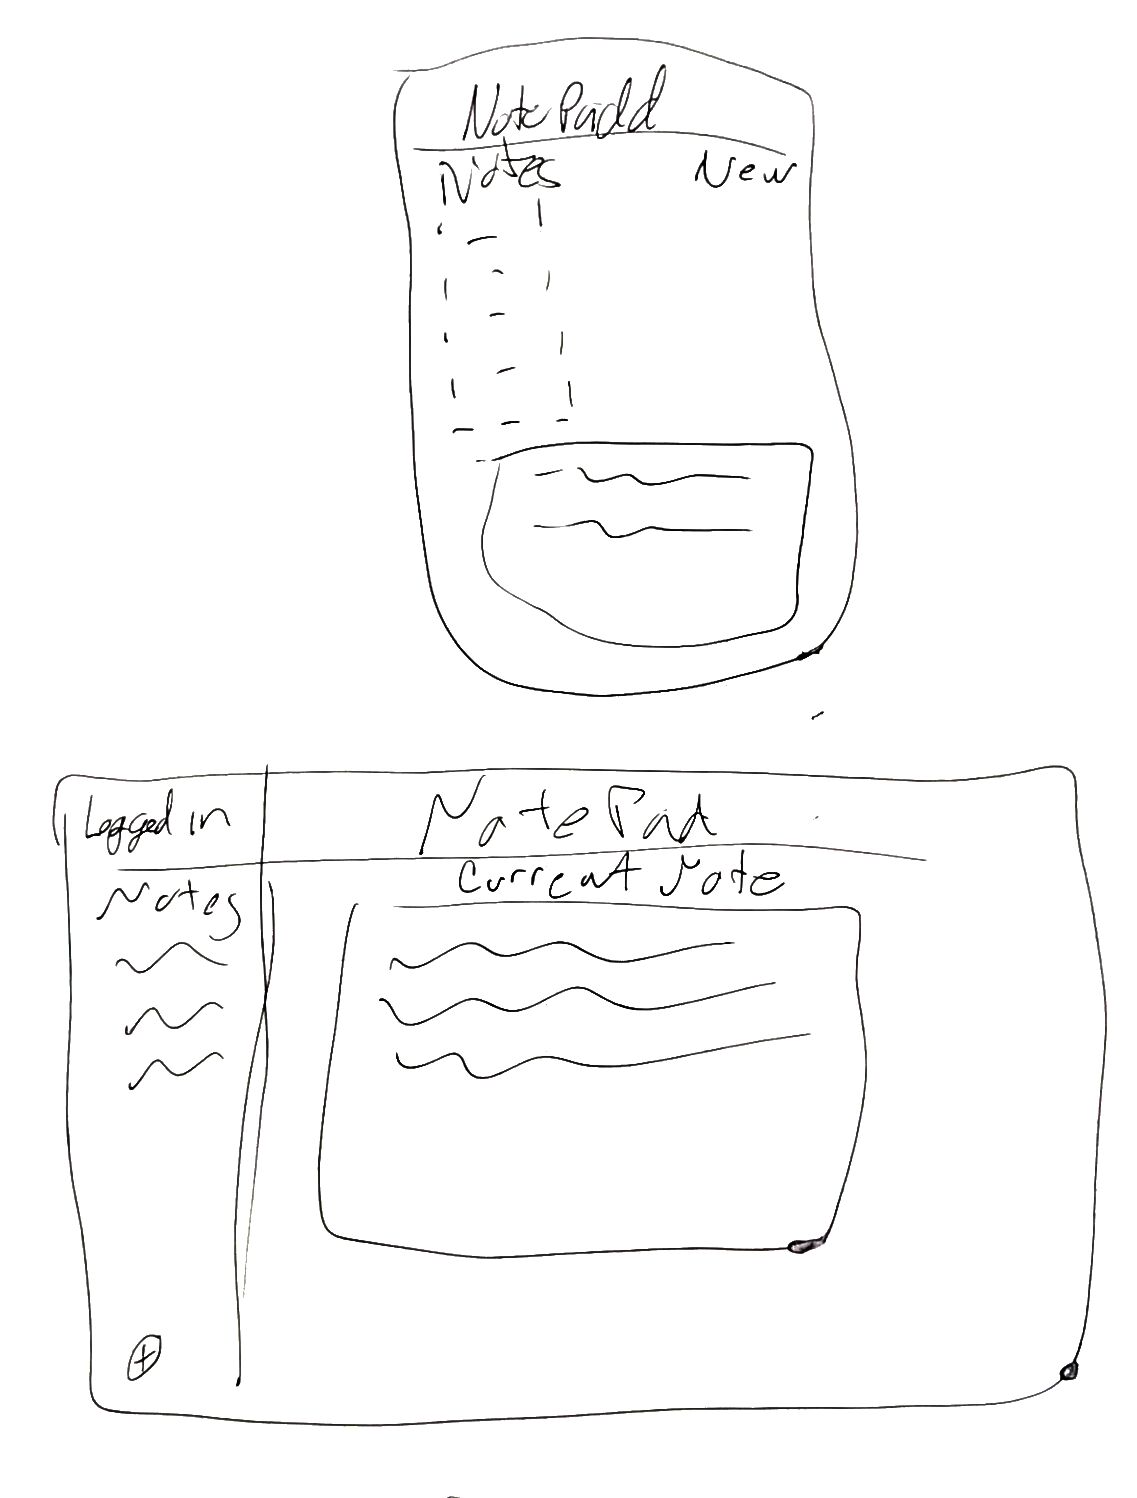 Note Padd
Notes New
Logged in
Note Pad
Notes
Current Note
+